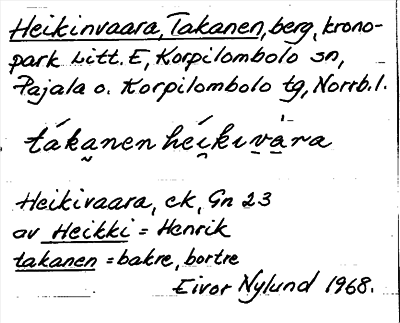 Heikinvaara, Takanen, berg, krono-
park Litt. E, Korpilombolo sn,
Pajala o. Korpilombolo tg, Norrb. l.
tákanen héikivàra
Heikivaara, ek, Gn 23
av Heikki = Henrik
takanen = bakre, bortre
Eivor Nylund 1968.